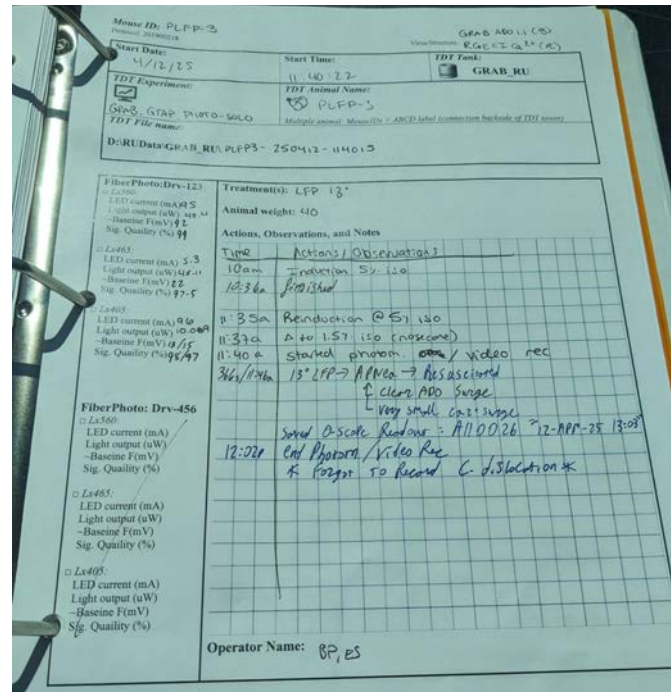 Mouse ID: PLFP-3
Protocol: 201900218
GRAB ADO 1.1 (S)
Virus/Structure: RGECI Ca2+ (R)
Start Date: 4/12/25
Start Time: 11:40:22
TDT Tank: GRAB_RU
TDT Experiment: GRAB, GTAP PHOTO-SOLO
TDT Animal Name: PLFP-3
Multiple animal: MouseIDs = ABCD label (connection backside of TDT tower)
TDT File name:
D:\RUData\GRAB_RU\ PLFP3 - 250412 - 114015
FiberPhoto: Drv-123
□ Lx560:
LED current (mA) 95
Light output (uW)
~Baseline F(mV) 92
Sig. Quaility (%) 99
□ Lx465:
LED current (mA) 5.3
Light output (uW) 40.11
~Baseline F(mV) 22
Sig. Quaility (%) 97.5
□ Lx405:
LED current (mA) 9.0
Light output (uW) 10.009
~Baseline F(mV) 13/15
Sig. Quaility (%) 98/97
FiberPhoto: Drv-456
□ Lx560:
LED current (mA)
Light output (uW)
~Baseine F(mV)
Sig. Quaility (%)
□ Lx465:
LED current (mA)
Light output (uW)
~Baseine F(mV)
Sig. Quaility (%)
□ Lx405:
LED current (mA)
Light output (uW)
~Baseine F(mV)
Sig. Quaility (%)
Treatment(s): LFP 13°
Animal weight: 40
Actions, Observations, and Notes
Time Actions / Observations
10am Induction 5% iso
10:36a finished
11:35a Reinduction @ 5% iso
11:37a Δ to 1.5% iso (nosecone)
11:40a started photom. / video rec
366s/11:46a 13° LFP → APNea → Resusciated
↑ clear ADO Surge
└ very small ca2+ surge
Saved O-Scope Readout: A110026 "12-APR-25 13:03"
12:02p end Photom./Video Rec
* Forgot to Record C. dislocation *
Operator Name: BP, ES